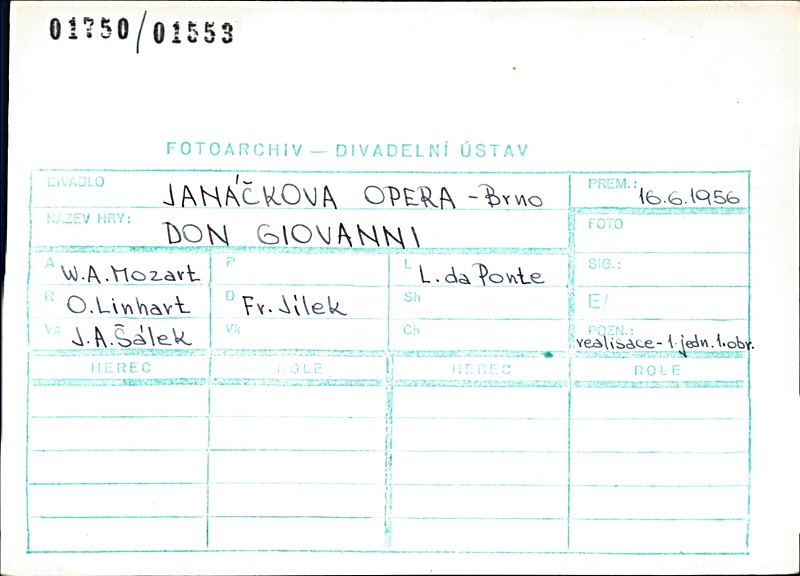 01750/01553
FOTOARCHIV — DIVADELNÍ ÚSTAV
DIVADLO JANÁČKOVA OPERA - Brno PREM.: 16.6.1956
NÁZEV HRY: DON GIOVANNI FOTO
A W.A.Mozart P L L.da Ponte SIG.:
R O.Linhart D Fr.Jílek Sh E/
Vs J.A.Šálek Vk Ch POZN.:
realisace-1.jedn.1.obr.
HEREC ROLE HEREC ROLE